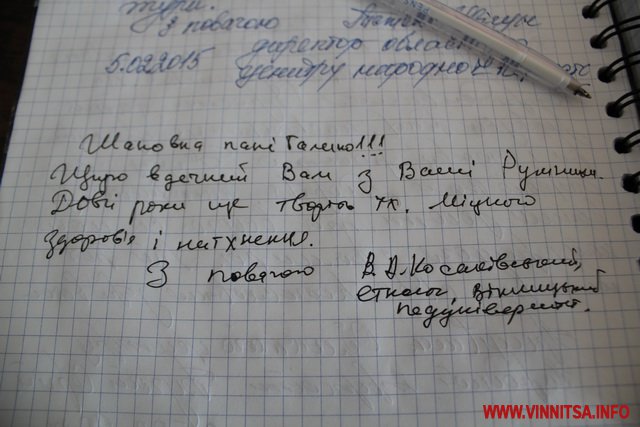 з повагою
директор
5.02.2015 центру народної
Шановна пані Галино!!!
Щиро вдячний Вам з Ваші Рушники.
Довгі роки ще творіть їх. Міцного
здоров'я і натхнення.
З повагою В.А.Косаківський,
етнолог, Вінницький
педуніверситет.
WWW.VINNITSA.INFO